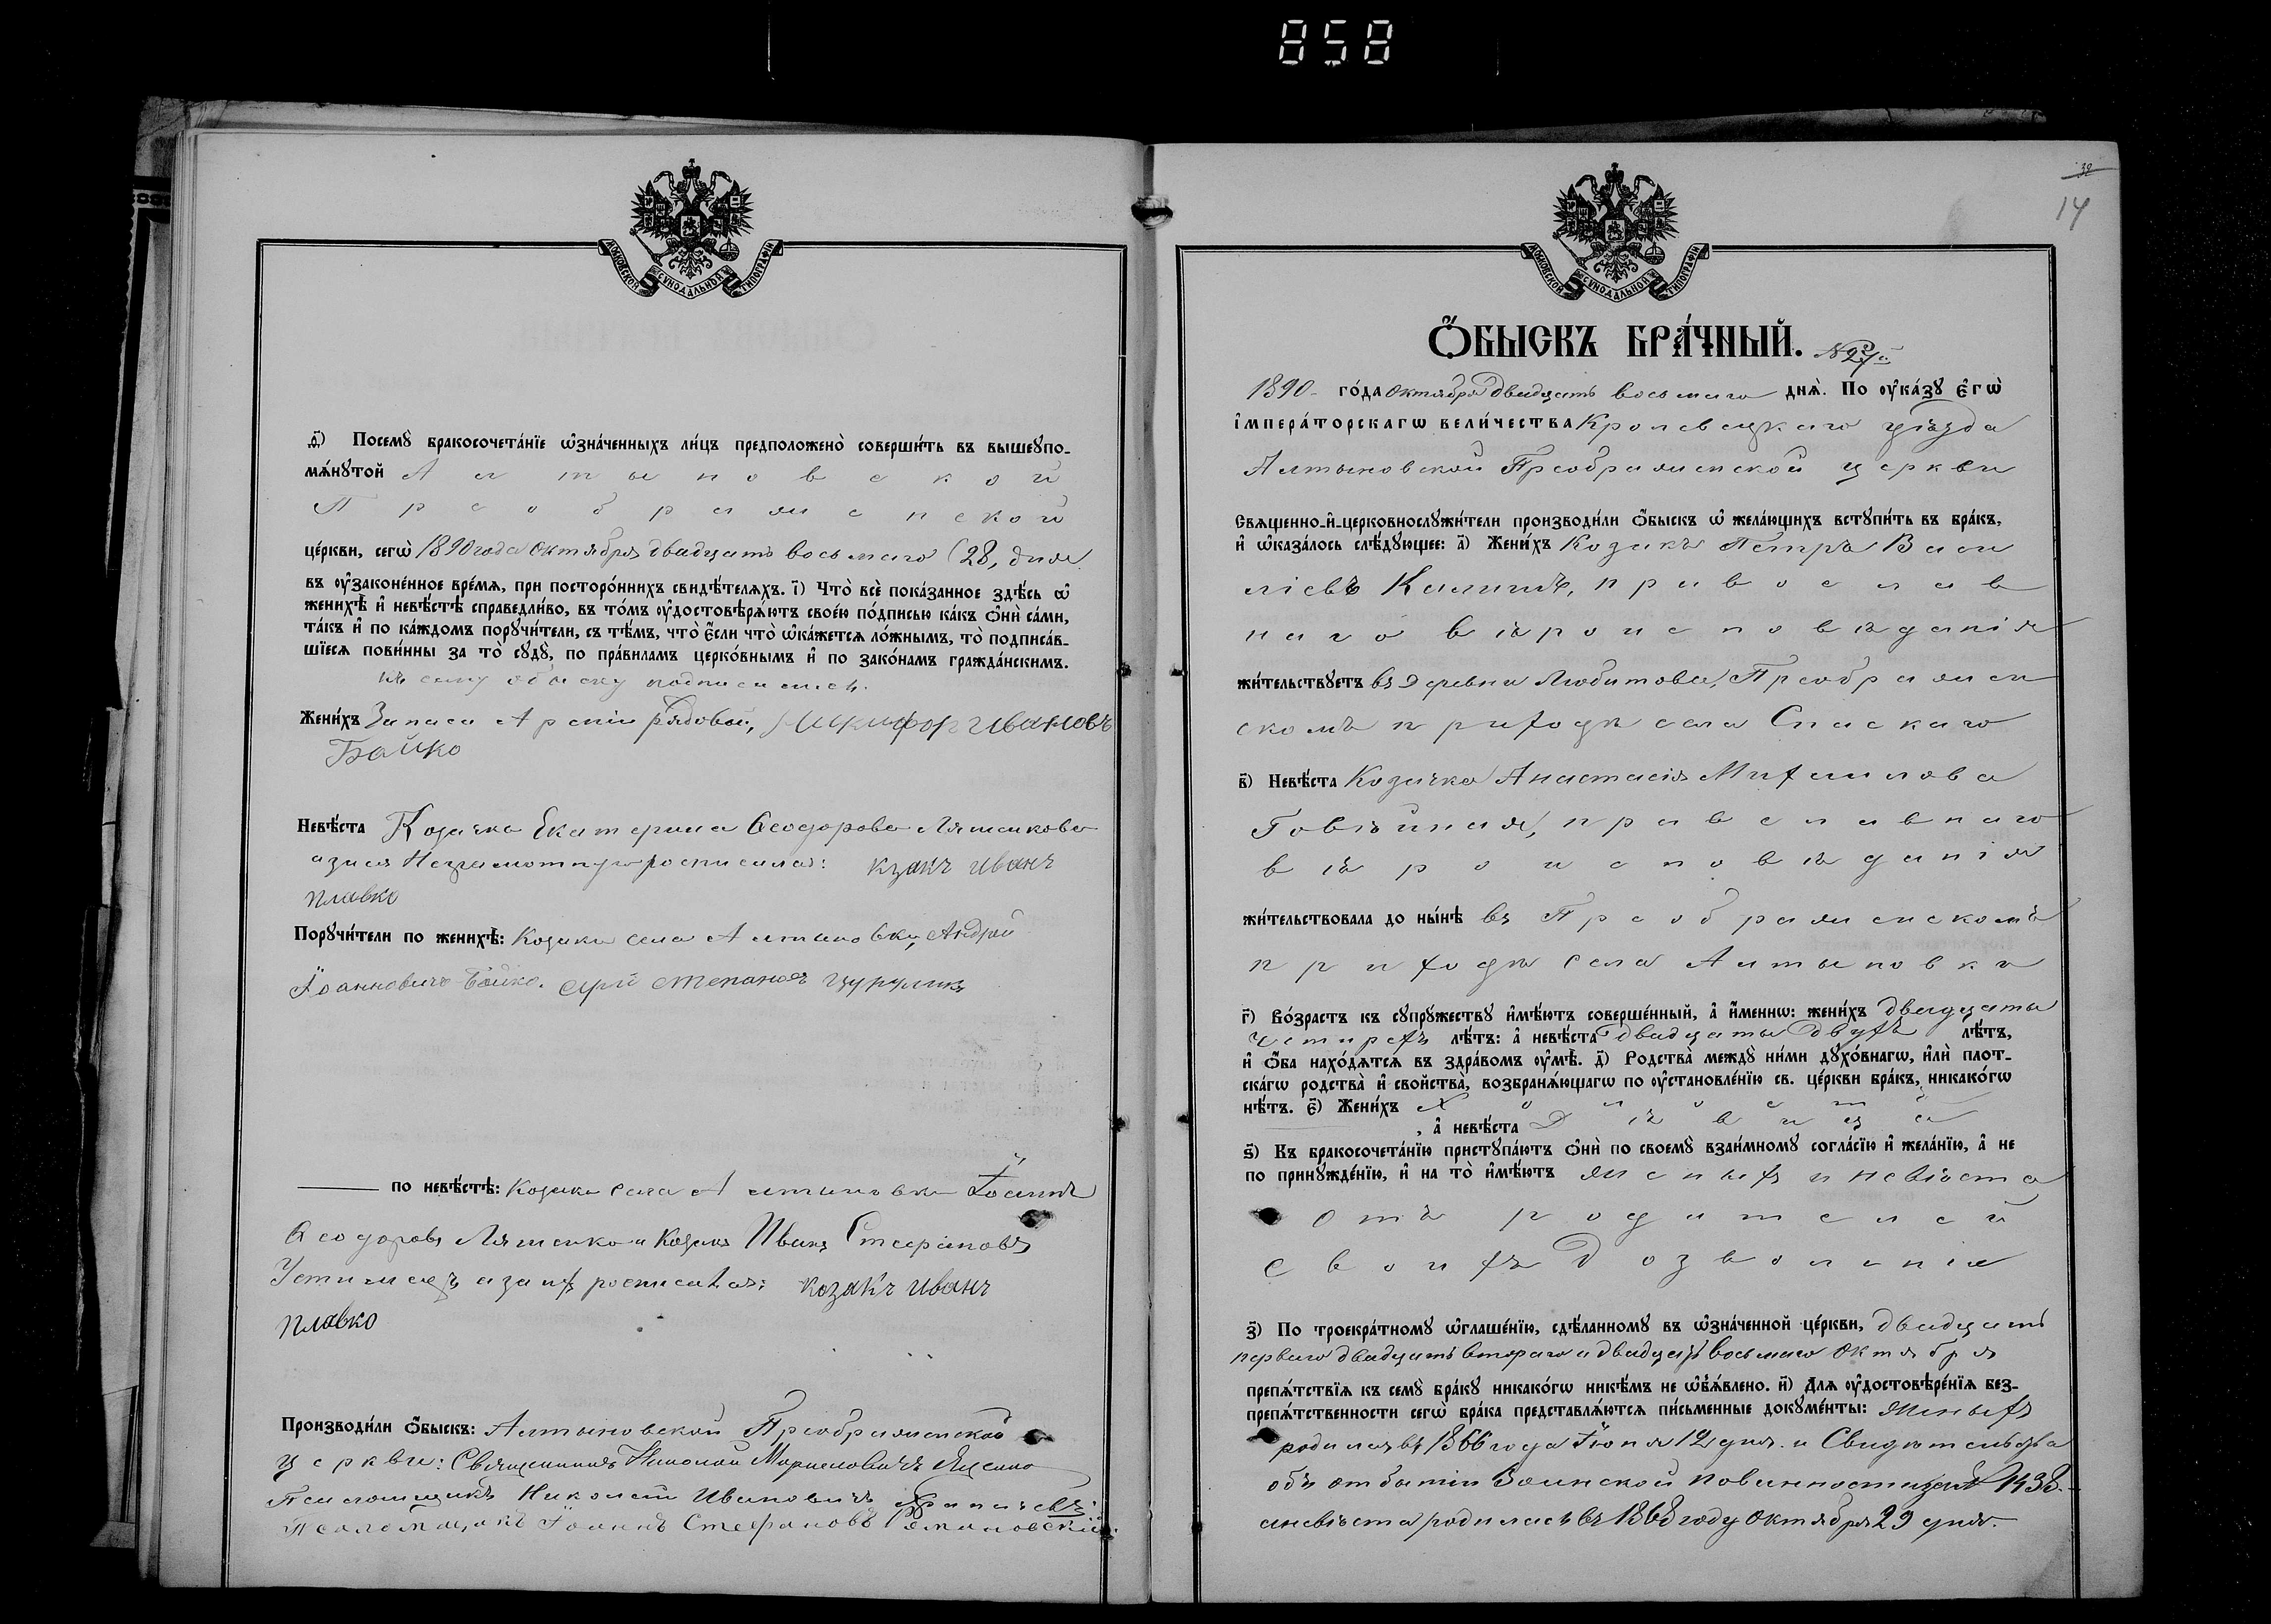 858
МОСКОВСКОЙ СѴНОДАЛЬНОЙ ТИПОГРАФІИ
ѳ҃) Посемꙋ̀ бракосочета́нїе ѡ҆зна́ченныхъ ли́цъ предположено̀ соверши́ть въ вышеꙋпо-
мѧ́нꙋтой Алтыновской
Преображенской
це́ркви, сегѡ̀ 1890 года Октября двадцать восьмаго (28, дня
въ ᲂу҆законе́нное вре́мѧ, при посторо́ннихъ свидѣ́телѧхъ. і҃) Что̀ всѐ пока́занное здѣ́сь ѡ҆
женихѣ̀ и҆ невѣ́стѣ справедли́во, въ то́мъ ᲂу҆достовѣрѧ́ютъ свое́ю по́дписью ка́къ ѻ҆нѝ са́ми,
та́къ и҆ по ка́ждомъ порꙋчи́тели, съ тѣ́мъ, что̀ є҆́сли что̀ ѡ҆ка́жетсѧ ло́жнымъ, то̀ подписа́в-
шїесѧ пови́нны за то̀ сꙋдꙋ̀, по пра́виламъ церко́внымъ и҆ по зако́намъ гражда́нскимъ.
къ сему обыску подписались.
Жени́хъ Запаса Арміи рядовой, Никифоръ Ивановъ
Бойко
Невѣ́ста Козачка Екатерина Ѳеодорова Ляшенкова
а за нея Неграмотную росписался: кзакъ иванъ
плавко
Порꙋчи́тели по женихѣ̀: Козаки села Алтыновки, Андрей
Іоанновичъ Бойко. степановъ цурупикъ
по невѣ́стѣ: Козаки села Алтыновки Іоаннъ
Ѳеодоровъ Ляшенко и Козакъ Иванъ Стефановъ
а за их росписался: козакъ иванъ
плавко
Производи́ли ѻ҆́быскъ: Алтыновской Преображенской
церкви: Священникъ Николай Яценко
Псаломщикъ Николай Ивановичъ
Псаломщикъ Іоаннъ Стефановъ
МОСКОВСКОЙ СѴНОДАЛЬНОЙ ТИПОГРАФІИ
32
14
Ѻ҆́быскъ бра́чный. №27й
1890 го́да Октября двадцать восьмаго днѧ̀. По ᲂу҆ка́зꙋ є҆гѡ̀
і҆мпера́торскагѡ вели́чества Кролевецкаго уѣзда
Алтыновской Преображенской церкви
Свѧщенно-и҆-церковнослꙋжи́тели производи́ли ѻ҆́быскъ ѡ҆ жела́ющихъ встꙋпи́ть въ бра́къ,
и҆ ѡ҆каза́лось слѣ́дꙋющее: а҃) Жени́хъ Козакъ Петръ Васи
ліевъ православ
наго вѣроисповѣданія
жи́тельствꙋетъ въ деревни Любитова, Преображен
скомъ приходѣ села Спаскаго
в҃) Невѣ́ста Козачка Анастасія Михаилова
православнаго
вѣроисповѣданія
жи́тельствовала до ны́нѣ въ Преображенскомъ
приходѣ села Алтыновки
г҃) Во́зрастъ къ сꙋпрꙋ́жествꙋ и҆мѣ́ютъ соверше́нный, а҆ и҆́менно: жени́хъ двадцати
четирехъ лѣ́тъ: а҆ невѣ́ста двадцати двухъ лѣ́тъ,
и҆ ѻ҆́ба нахо́дѧтсѧ въ здра́вомъ ᲂу҆мѣ̀. д҃) Родства̀ междꙋ̀ ни́ми дꙋхо́внагѡ, и҆лѝ плот-
ска́гѡ родства̀ и҆ свойства̀, возбранѧ́ющагѡ по ᲂу҆становле́нїю св. це́ркви бра́къ, никако́гѡ
нѣ́тъ. є҃) Жени́хъ Холостъ
, а҆ невѣ́ста Дѣвица
ѕ҃) Къ бракосочета́нїю пристꙋпа́ютъ ѻ҆нѝ по своемꙋ̀ взаи́мномꙋ согла́сїю и҆ жела́нїю, а҆ не
по принꙋжде́нїю, и҆ на то̀ и҆мѣ́ютъ женихъ и невѣста
отъ родителей
своихъ дозволенія
з҃) По троекра́тномꙋ ѡ҆глаше́нїю, сдѣ́ланномꙋ въ ѡ҆зна́ченной це́ркви, двадцать
перваго двадцать втораго и двадцать восьмаго октября
препѧ́тствїѧ къ семꙋ̀ бра́кꙋ никако́гѡ никѣ́мъ не ѡ҆б̾ѧ́влено. и҃) Длѧ ᲂу҆достовѣре́нїѧ без-
препѧ́тственности сегѡ̀ бра́ка представлѧ́ютсѧ пи́сьменные докꙋме́нты: женихъ
родился въ 1866 года Іюня 12 дня. и Свидѣтельства
объ отбытіи Воинской повинности за № 1438.
а невѣста родилась въ 1868 году Октября 29 дня.